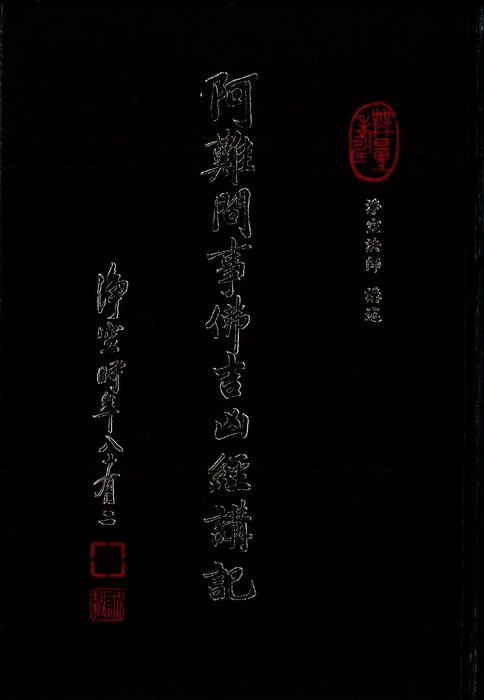 無量壽
淨空法師 講述
阿難問事佛吉凶經講記
淨空時年八十有二
誠敬